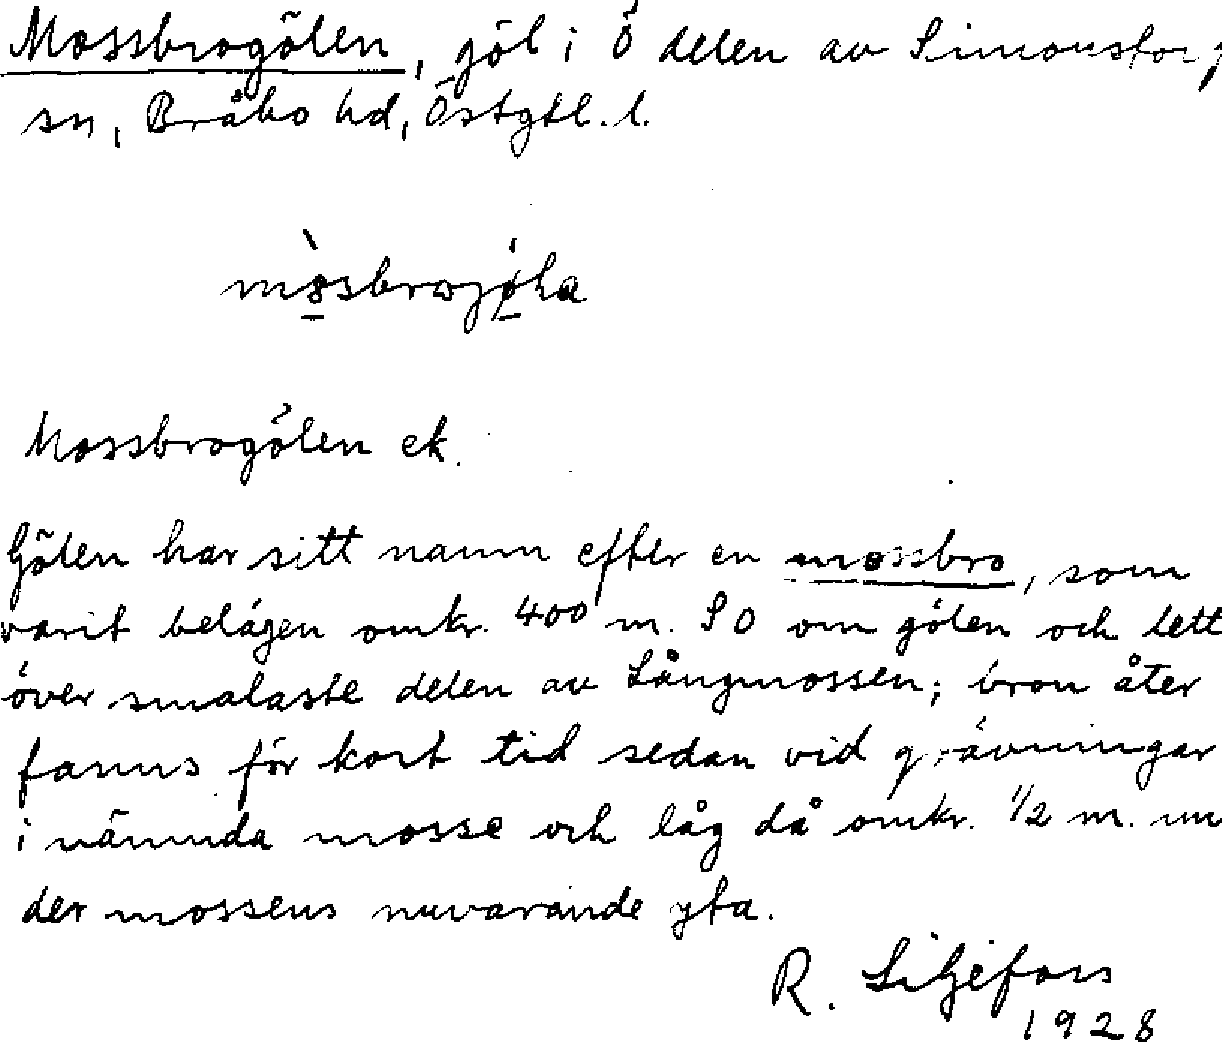 Mossbrogölen, göl i Ö delen av Simonstorp
sn, Bråbo hd, Östgtl. l.
Mossbrogölen ek.
Gölen har sitt namn efter en mossbro, som
varit belägen omkr. 400 m. SO om gölen och lett
över smalaste delen av Långmossen; bron åter
fanns för kort tid sedan vid grävningar
i nämnda mosse och låg då omkr. 1/2 m. un
der mossens nuvarande yta.
R. Liljefors
1928